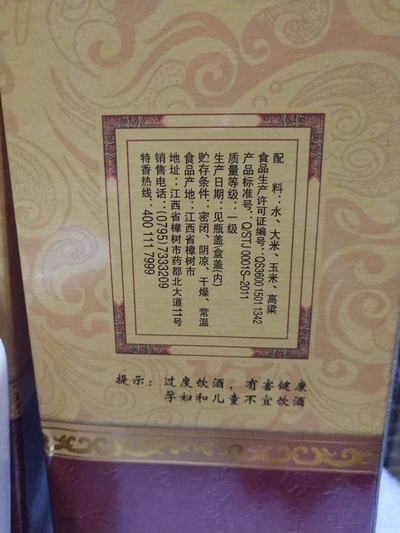 配 料：水、大米、玉米、高粱
食品生产许可证编号：QS360015011342
产品标准号：Q/STJ0001S-2011
质量等级：一级
生产日期：见瓶盖(盒盖内)
贮存条件：密闭、阴凉、干燥、常温
食品产地：江西省樟树市
地址：江西省樟树市药都北大道11号
销售电话：(0795)7333209
特香热线：400 111 7999
提示：过度饮酒，有害健康
孕妇和儿童不宜饮酒